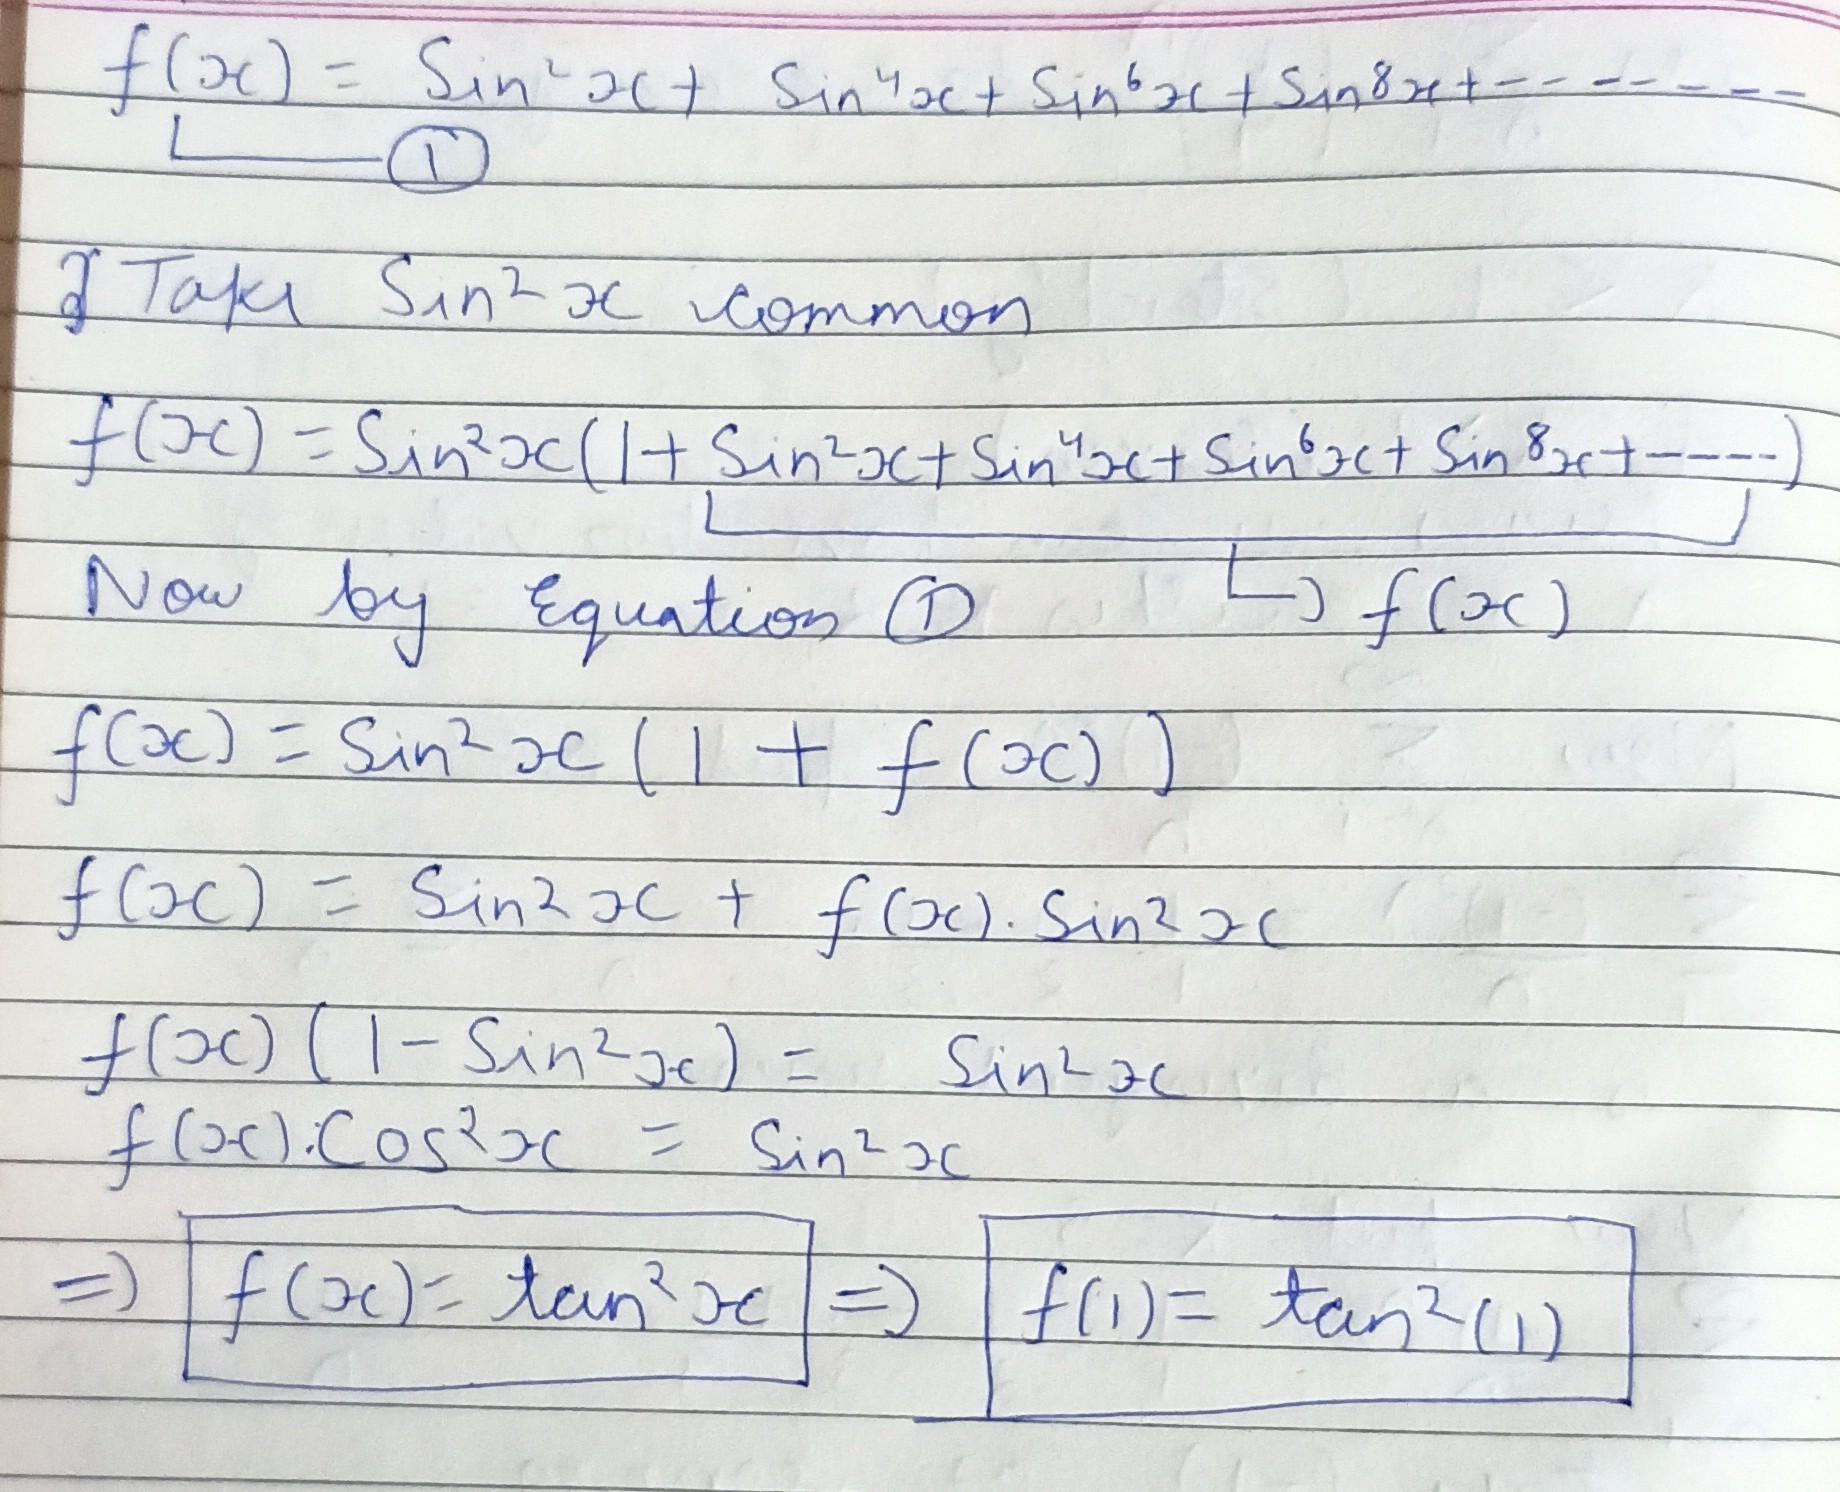 f(x) = Sin²x + Sin⁴x + Sin⁶x + Sin⁸x + --------
①
Take Sin²x common
f(x) = Sin²x(1 + Sin²x + Sin⁴x + Sin⁶x + Sin⁸x + -----)
Now by Equation ① ↳ f(x)
f(x) = Sin²x (1 + f(x))
f(x) = Sin²x + f(x). Sin²x
f(x) (1 - Sin²x) = Sin²x
f(x).Cos²x = Sin²x
=) f(x) = tan²x =) f(1) = tan²(1)